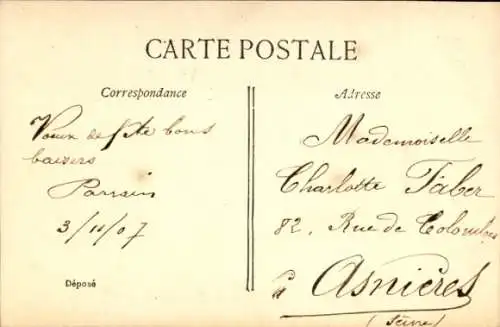 CARTE POSTALE
Correspondance
Vœux de fête bons
baisers
Parrain
3/11/07
Déposé
Adresse
Mademoiselle
Charlotte Faber
82, Rue de Colombes
à Asnières
(Seine)